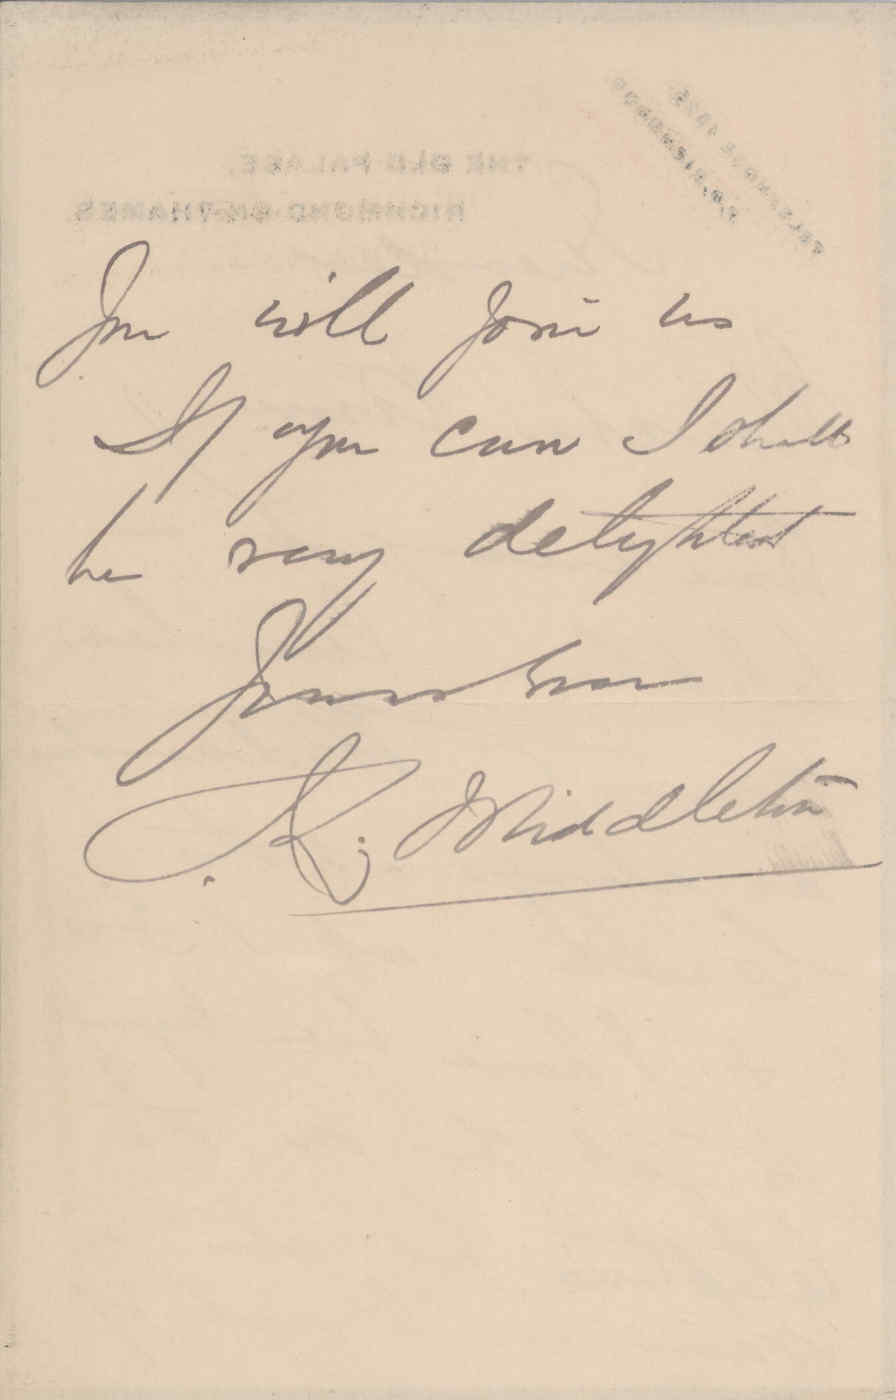 THE OLD PALACE,
RICHMOND-ON-THAMES.
You will join us
If you can I shall
be very delighted
Yours
A. Middleton